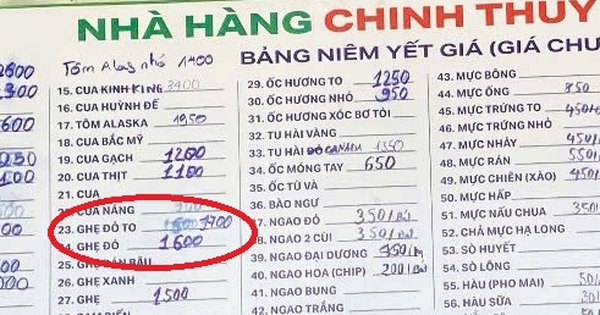 NHÀ HÀNG CHINH THUY
BẢNG NIÊM YẾT GIÁ (GIÁ CHƯ
Tôm Alas nhỏ 1400
15. CUA KINH KING 3400
16. CUA HUỲNH ĐẾ
17. TÔM ALASKA 1950
18. CUA BẮC MỸ
19. CUA GẠCH 1200
20. CUA THỊT 1100
21. CUA
CUA NÀNG
23. GHẸ ĐỎ TO 1700
GHẸ ĐỎ 1600
25. GHẸ
26. GHẸ XANH
27. GHẸ 1500
29. ỐC HƯƠNG TO 1250
30. ỐC HƯƠNG NHỎ 950
31. ỐC HƯƠNG XÓC BƠ TỎI
32. TU HÀI VÀNG
33. TU HÀI ĐÓ CANADA 1350
34. ỐC MÓNG TAY 650
35. ỐC TÙ VÀ
36. BÀO NGƯ
37. NGAO ĐỎ 350/
38. NGAO 2 CÙI 350/
39. NGAO ĐẠI DƯƠNG 450/
40. NGAO HOA (CHIP) 200/
41. NGAO BUNG
42. NGAO TRẮNG
43. MỰC BÔNG
44. MỰC ỐNG 850
45. MỰC TRỨNG TO 450/
46. MỰC TRỨNG NHỎ
47. MỰC NHÁY 450/
48. MỰC RÁN 550/
49. MỰC CHIÊN (XÀO) 450/
50. MỰC HẤP
51. MỰC NẤU CHUA 350/
52. CHẢ MỰC HẠ LONG
53. SÒ HUYẾT
54. SÒ LÔNG
55. HÀU (PHO MAI) 50/
56. HÀU SỮA